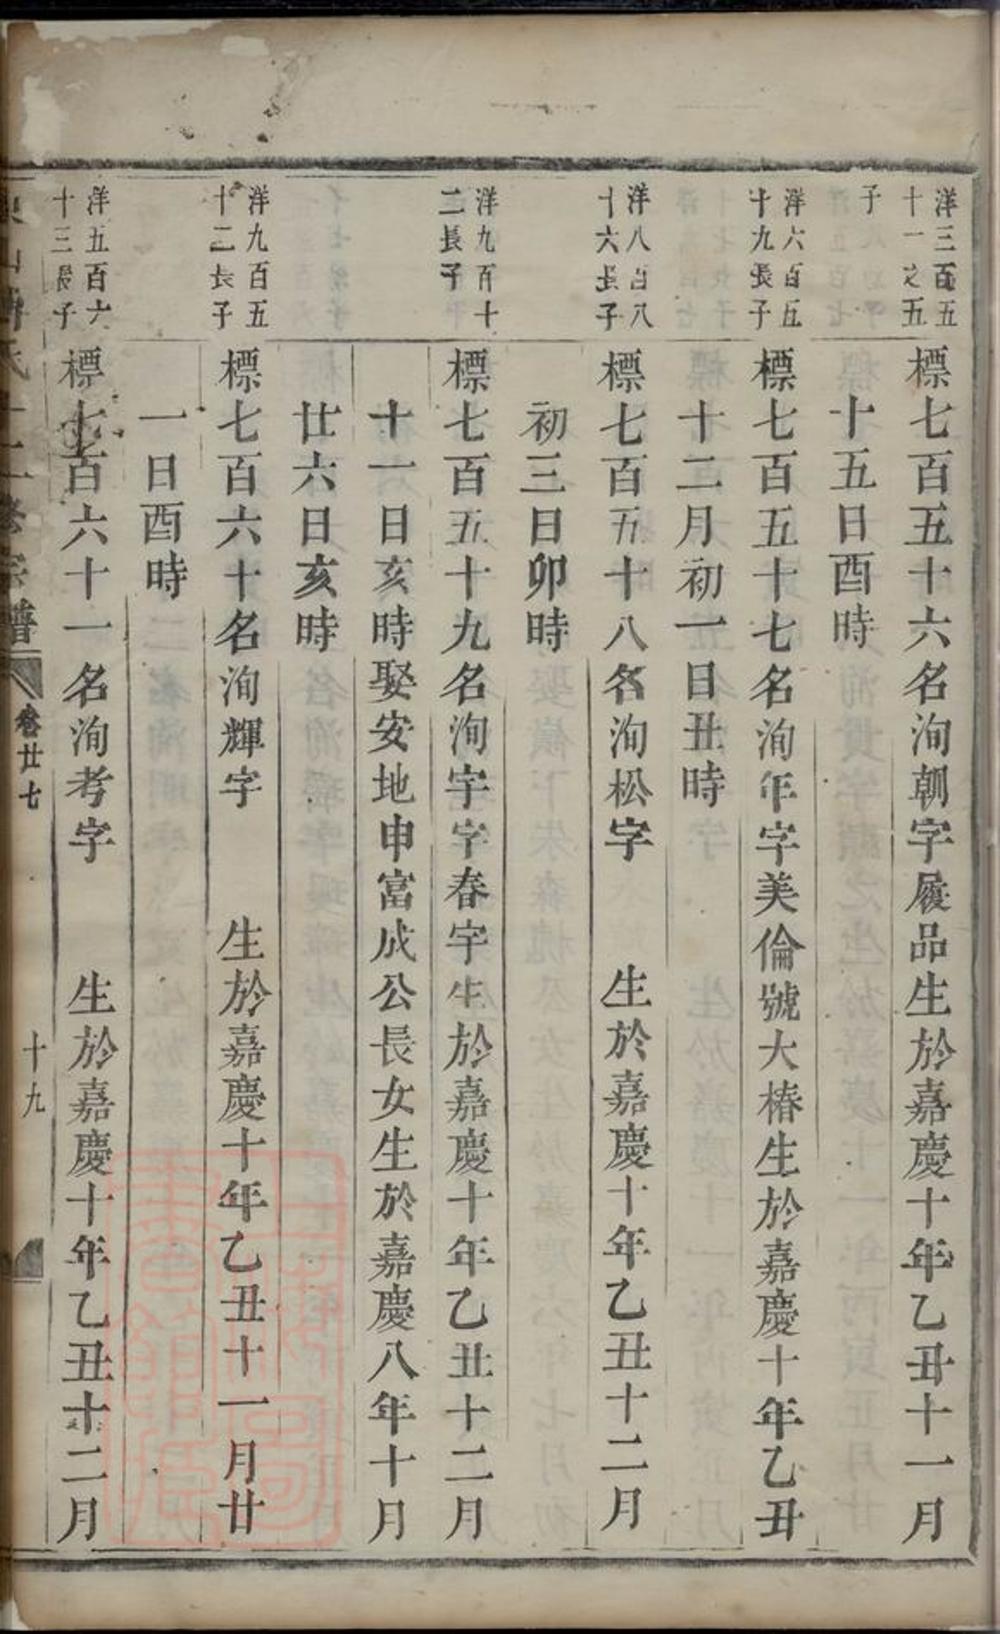 洋三百五
十一之五
子
標七百五十六名洵朝字履品生於嘉慶十年乙丑十一月
十五日酉時
洋六百五
十九長子
標七百五十七名洵年字美倫號大椿生於嘉慶十年乙丑
十二月初一日丑時
洋八百八
十六長子
標七百五十八名洵松字 生於嘉慶十年乙丑十二月
初三日卯時
洋九百十
二長子
標七百五十九名洵宇字春宇生於嘉慶十年乙丑十二月
十一日亥時娶安地申富成公長女生於嘉慶八年十月
廿六日亥時
洋九百五
十二長子
標七百六十名洵輝字 生於嘉慶十年乙丑十一月廿
一日酉時
洋五百六
十三長子
標七百六十一名洵考字 生於嘉慶十年乙丑十二月
宗譜
卷廿七
十九